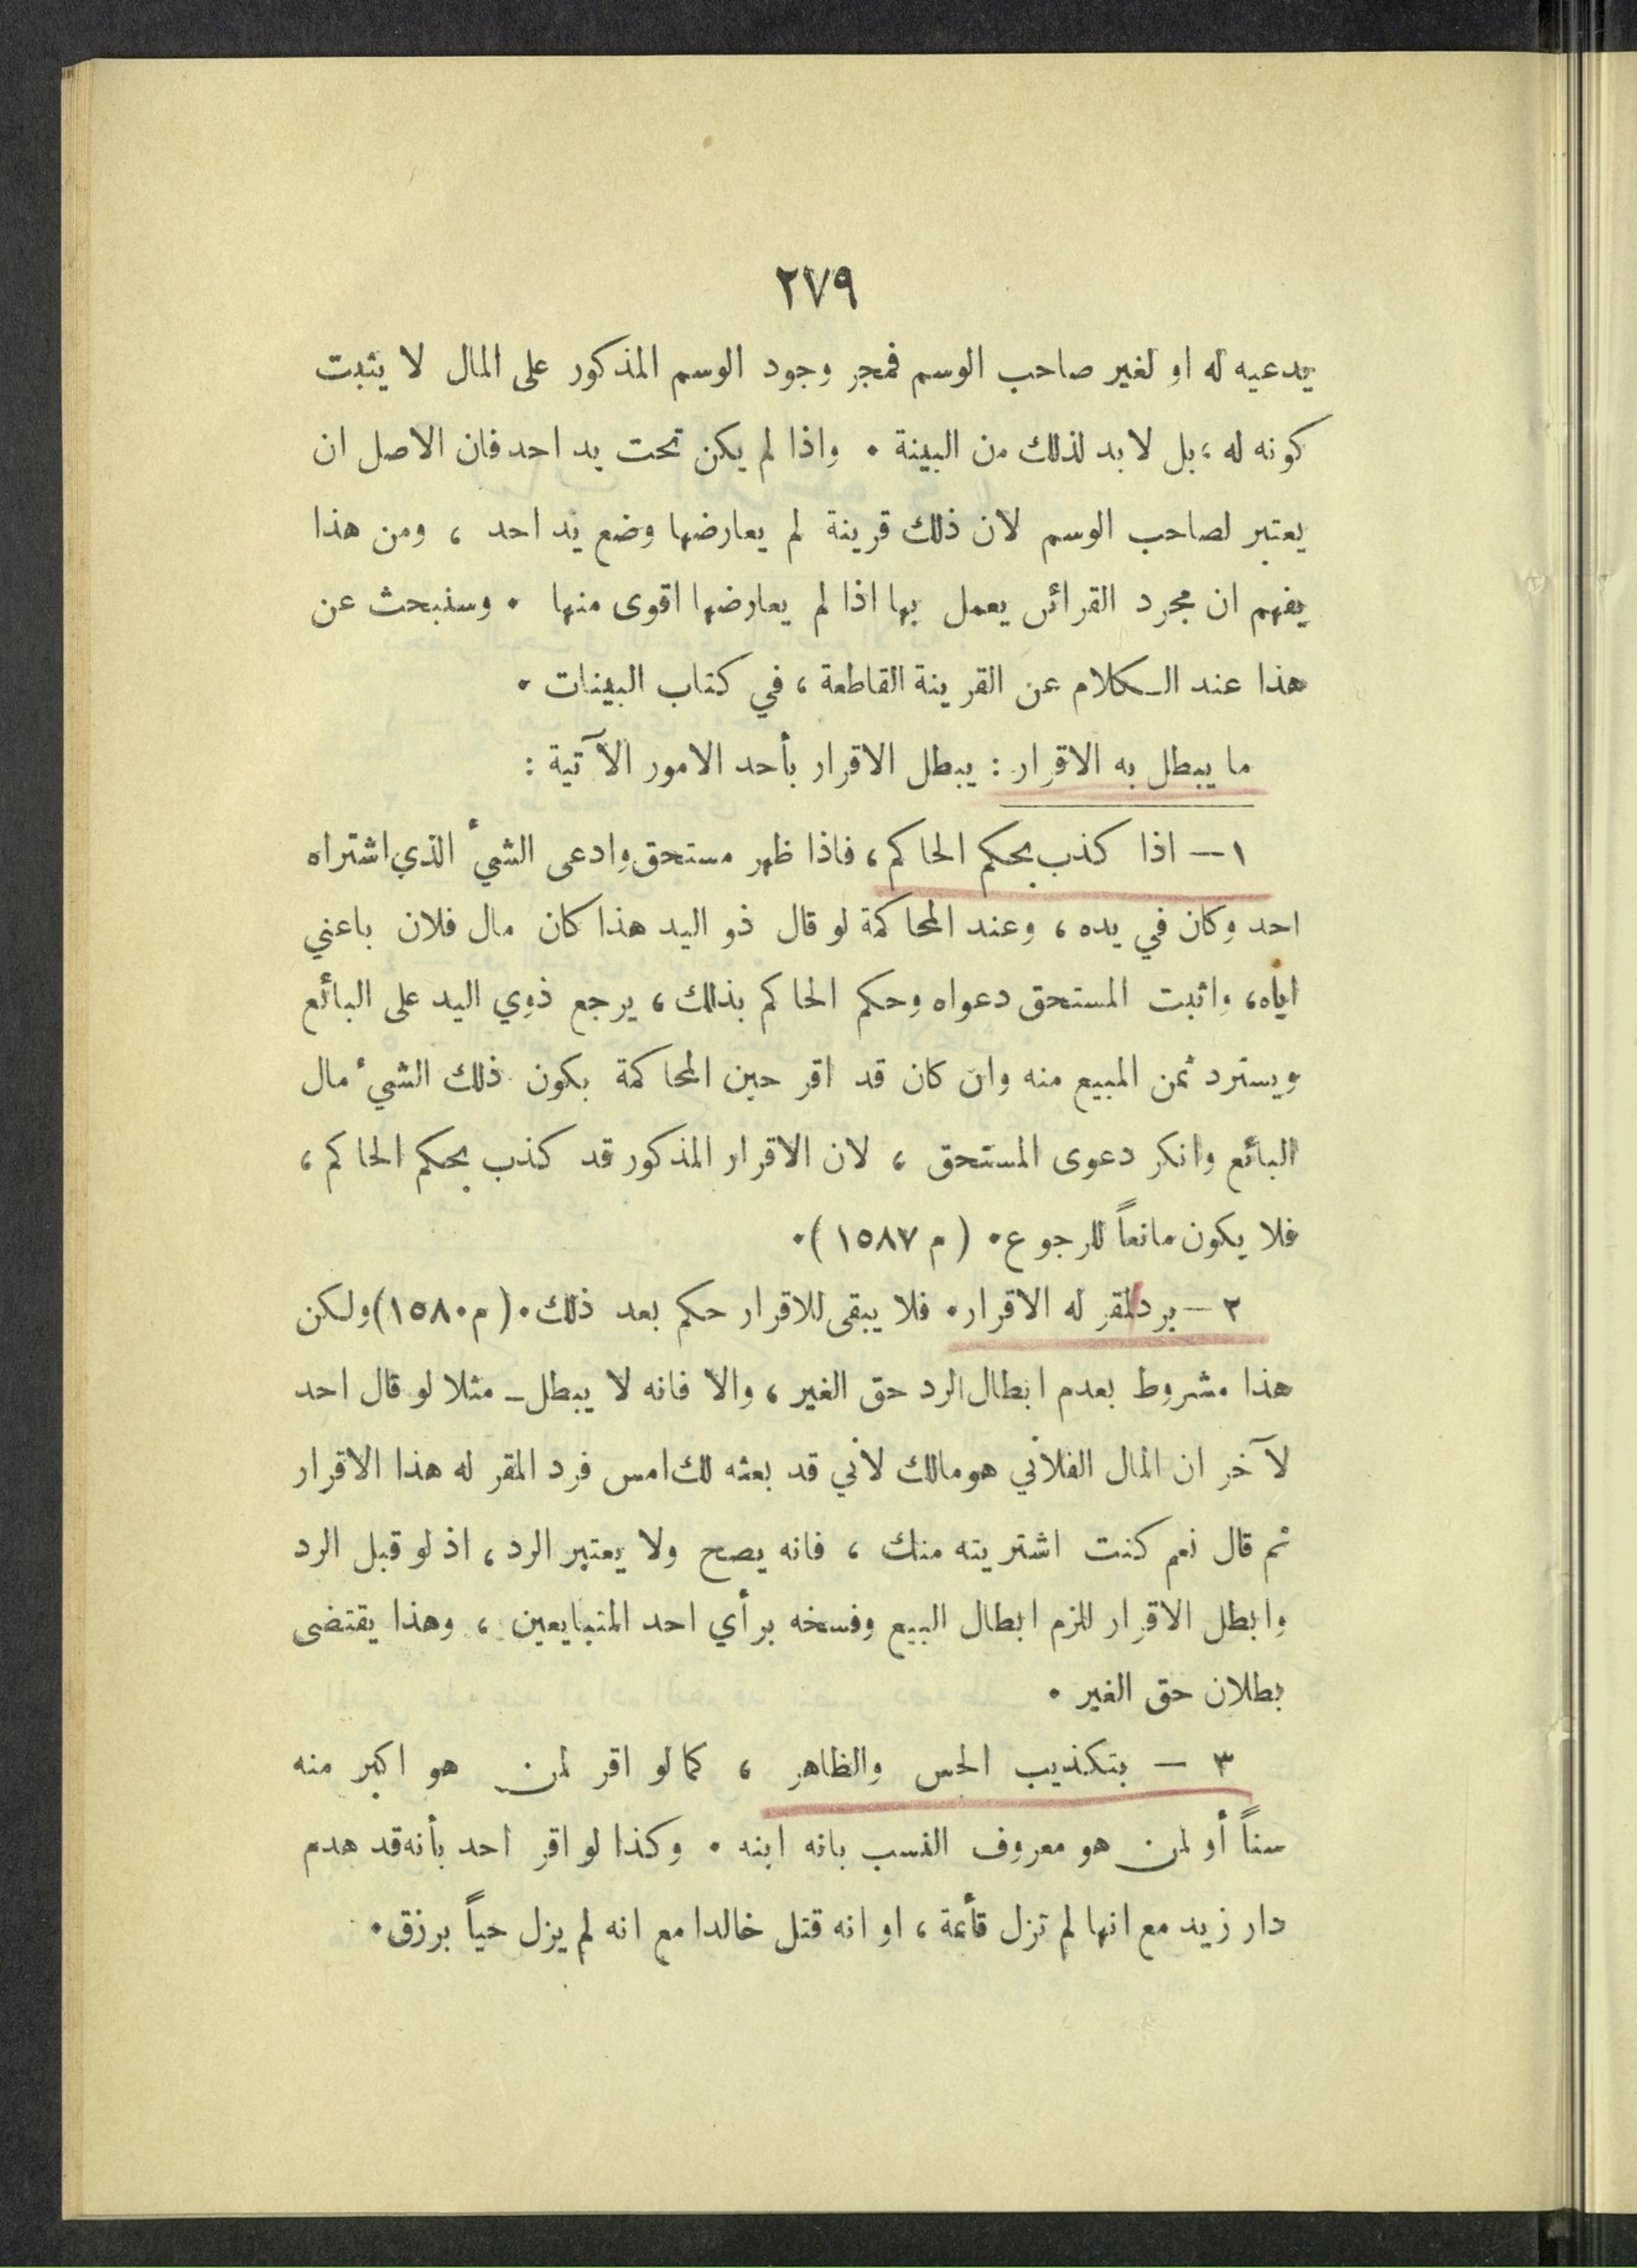 ٢٧٩
يدعيه له او لغير صاحب الوسم فمجر وجود الوسم المذكور على المال لا يثبت
كونه له ، بل لابد لذلك من البينة . واذا لم يكن تحت يد احد فان الاصل ان
يعتبر لصاحب الوسم لان ذلك قرينة لم يعارضها وضع يد احد ، ومن هذا
يفهم ان مجرد القرائن يعمل بها اذا لم يعارضها اقوى منها . وسنبحث عن
هذا عند الكلام عن القرينة القاطعة ، في كتاب البينات .
ما يبطل به الاقرار : يبطل الاقرار بأحد الامور الآتية :
١ — اذا كذب بحكم الحاكم ، فاذا ظهر مستحق وادعى الشيء الذي اشتراه
احد وكان في يده ، وعند المحاكمة لو قال ذو اليد هذا كان مال فلان باعني
اياه ، واثبت المستحق دعواه وحكم الحاكم بذلك ، يرجع ذوي اليد على البائع
ويسترد ثمن المبيع منه وان كان قد اقر حين المحاكمة بكون ذلك الشيء مال
البائع وانكر دعوى المستحق ، لان الاقرار المذكور قد كذب بحكم الحاكم ،
فلا يكون مانعاً للرجوع . ( م ١٥٨٧ ) .
٢ — برد المقر له الاقرار . فلا يبقى للاقرار حكم بعد ذلك . ( م ١٥٨٠ ) ولكن
هذا مشروط بعدم ابطال الرد حق الغير ، والا فانه لا يبطل — مثلا لو قال احد
لآخر ان المال الفلاني هو مالك لأني قد بعته لك امس فرد المقر له هذا الاقرار
ثم قال نعم كنت اشتريته منك ، فانه يصح ولا يعتبر الرد ، اذ لو قبل الرد
وابطل الاقرار للزم ابطال البيع وفسخه برأي احد المتبايعين ، وهذا يقتضى
بطلان حق الغير .
٣ — بتكذيب الحس والظاهر ، كما لو اقر لمن هو اكبر منه
سناً أو لمن هو معروف النسب بانه ابنه . وكذا لو اقر احد بأنه قد هدم
دار زيد مع انها لم تزل قائمة ، او انه قتل خالدا مع انه لم يزل حياً يرزق .